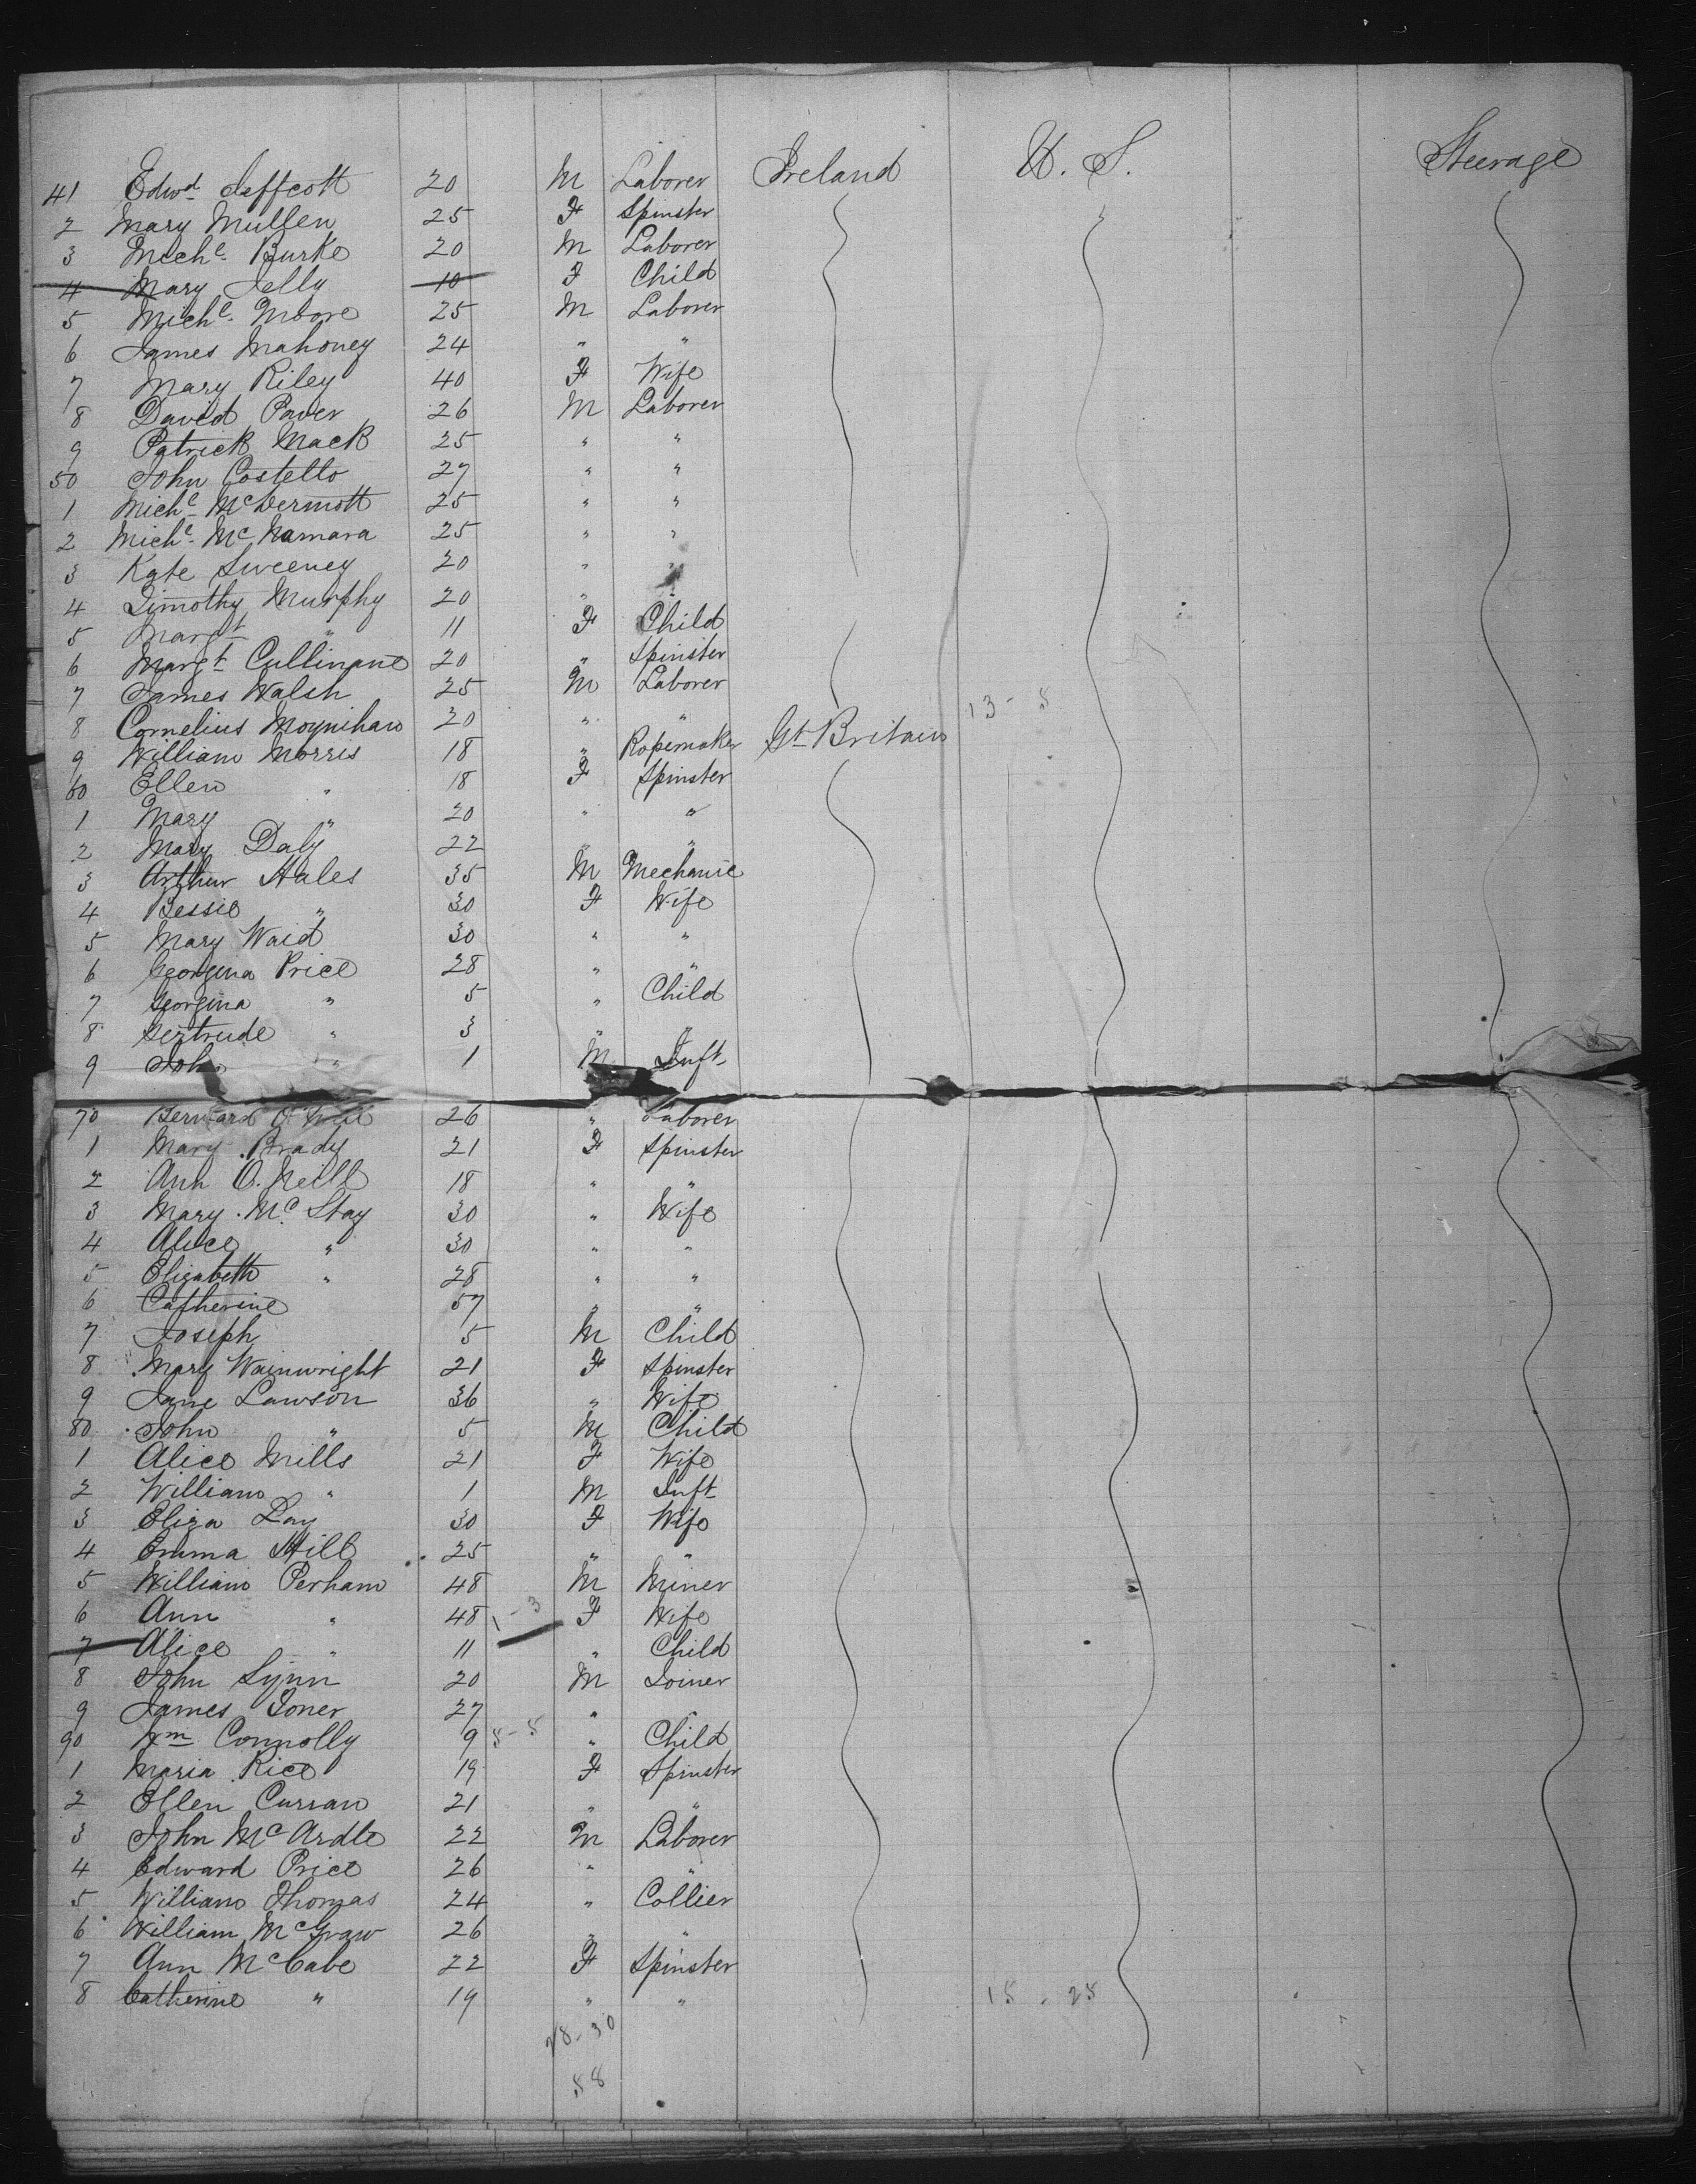 41 Edwd Jeffcott 20 M Laborer Ireland U. S. Steerage
2 Mary Mullen 25 F Spinster
3 Michl Burke 20 M Laborer
4 Mary Jelly 10 F Child
5 Michl Moore 25 M Laborer
6 James Mahoney 24 " "
7 Mary Riley 40 F Wife
8 David Power 26 M Laborer
9 Patrick Mack 25 " "
50 John Costello 27 " "
1 Michl McDermott 25 " "
2 Michl McNamara 25 " "
3 Kate Sweeney 20 " "
4 Timothy Murphy 20 " "
5 Margt " 11 F Child
6 Margt Cullinane 20 " Spinster
7 James Walsh 25 M Laborer
8 Cornelius Moynihan 20 " " 13 - 5
9 William Morris 18 " Ropemaker Gt Britain
60 Ellen " 18 F Spinster
1 Mary " 20 " "
2 Mary Daly 22 " "
3 Arthur Hales 35 M Mechanic
4 Bessie " 30 F Wife
5 Mary Waid 30 " "
6 Georgina Price 28 " "
7 Georgina " 5 " Child
8 Gertrude " 3 " "
9 John " 1 M Inft
70 Bernard O'Neil 26 " Laborer
1 Mary Brady 21 F Spinster
2 Ann O. Neill 18 " "
3 Mary McStay 30 " Wife
4 Alice " 30 " "
5 Elizabeth " 28 " "
6 Catherine 57 " "
7 Joseph 5 M Child
8 Mary Wainwright 21 F Spinster
9 Jane Lawson 36 " Wife
80 John " 5 M Child
1 Alice Mills 21 F Wife
2 William " 1 M Inft
3 Eliza Lay 30 F Wife
4 Emma Hill 25 " "
5 William Perham 48 M Miner
6 Ann " 48 1 - 3 F Wife
7 Alice " 11 " Child
8 John Lynn 20 M Joiner
9 James Toner 27 " "
90 Wm Connolly 9 5 - 5 " Child
1 Maria Rice 19 F Spinster
2 Ellen Curran 21 " "
3 John McArdle 22 M Laborer
4 Edward Price 26 " "
5 William Thomas 24 " Collier
6 William McGraw 26 " "
7 Ann McCabe 22 F Spinster
8 Catherine " 19 " " 15 - 25
28 - 30
58